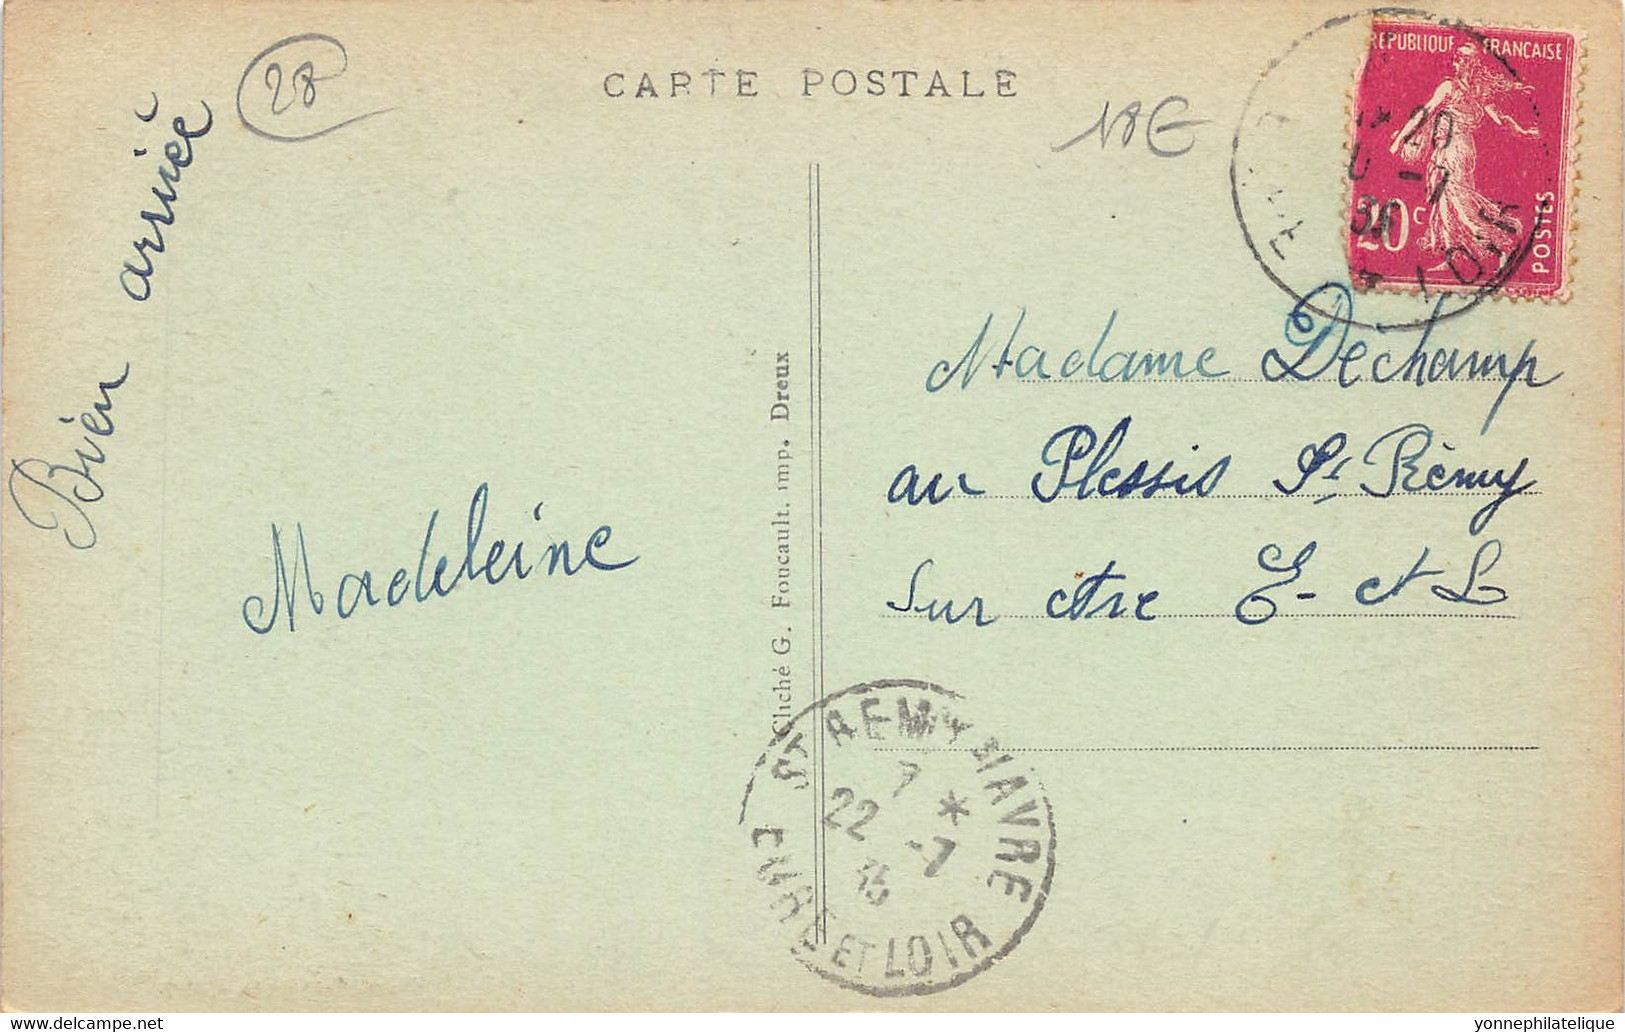 28
CARTE POSTALE
18€
REPUBLIQUE FRANCAISE
20c
POSTES
20
-7
LOIR
Bien arrivée
Madeleine
Cliché G. Foucault. imp. Dreux
Madame Dechamp
au Plessis St Rémy
Sur Avre E- et L
ST REMY S/ AVRE
7 *
22 -7
EURE ET LOIR
yonnephilatelique